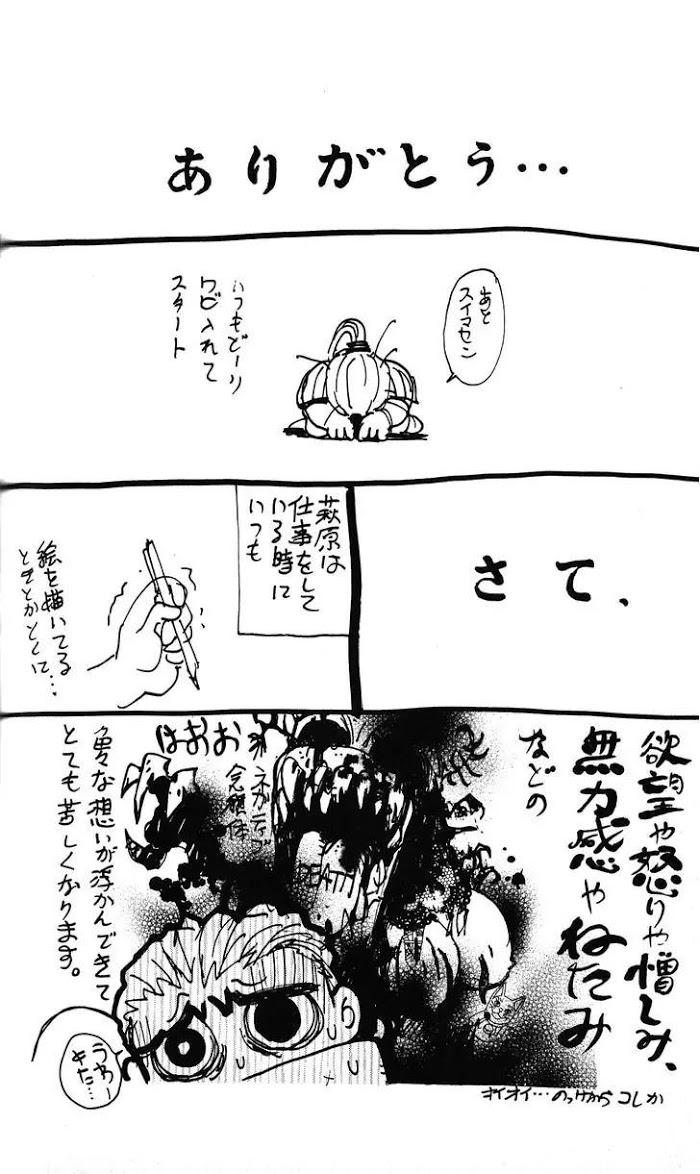 ありがとう…
あと
スイマセン
いつもどーり
ワビ入れて
スタート
さて、
萩原は
仕事をして
いる時に
いつも
絵を描いてる
ときとかとくに…
欲望や怒りや憎しみ、
無力感やねたみ
などの
はおお
ネガティブ
念積体
DEATH
色々な想いが浮かんできて
とても苦しくなります。
うわー
きた…
オイオイ…のっけからコレか